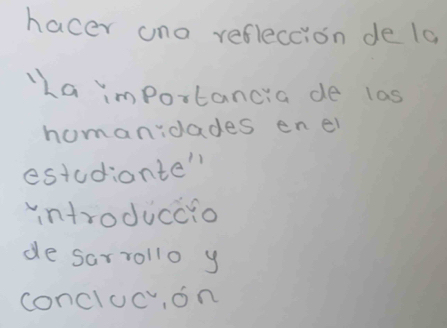 hacer una reflección de la
"La importancia de las
humanidades en el
estudiante"
introduccio
de sarrollo y
conclución